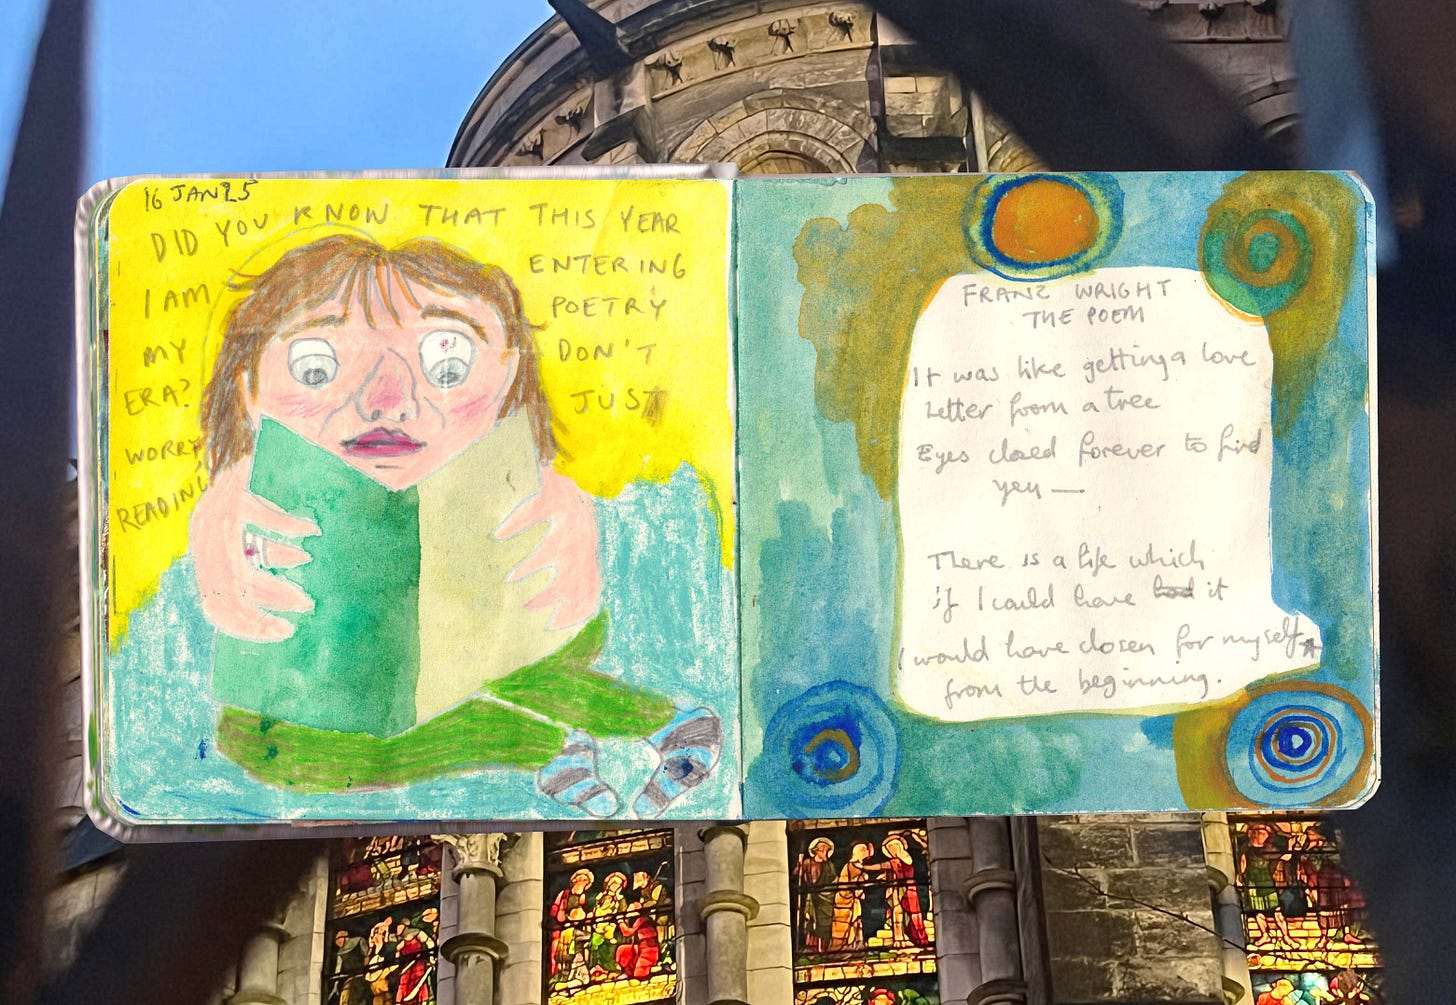 16 JAN 25
DID YOU KNOW THAT THIS YEAR
I AM ENTERING
MY POETRY
ERA? DON'T
WORRY, JUST
READING
FRANZ WRIGHT
THE POEM
It was like getting a love
Letter from a tree
Eyes closed forever to find
you —
There is a life which
if I could have had it
I would have chosen for myself
from the beginning.